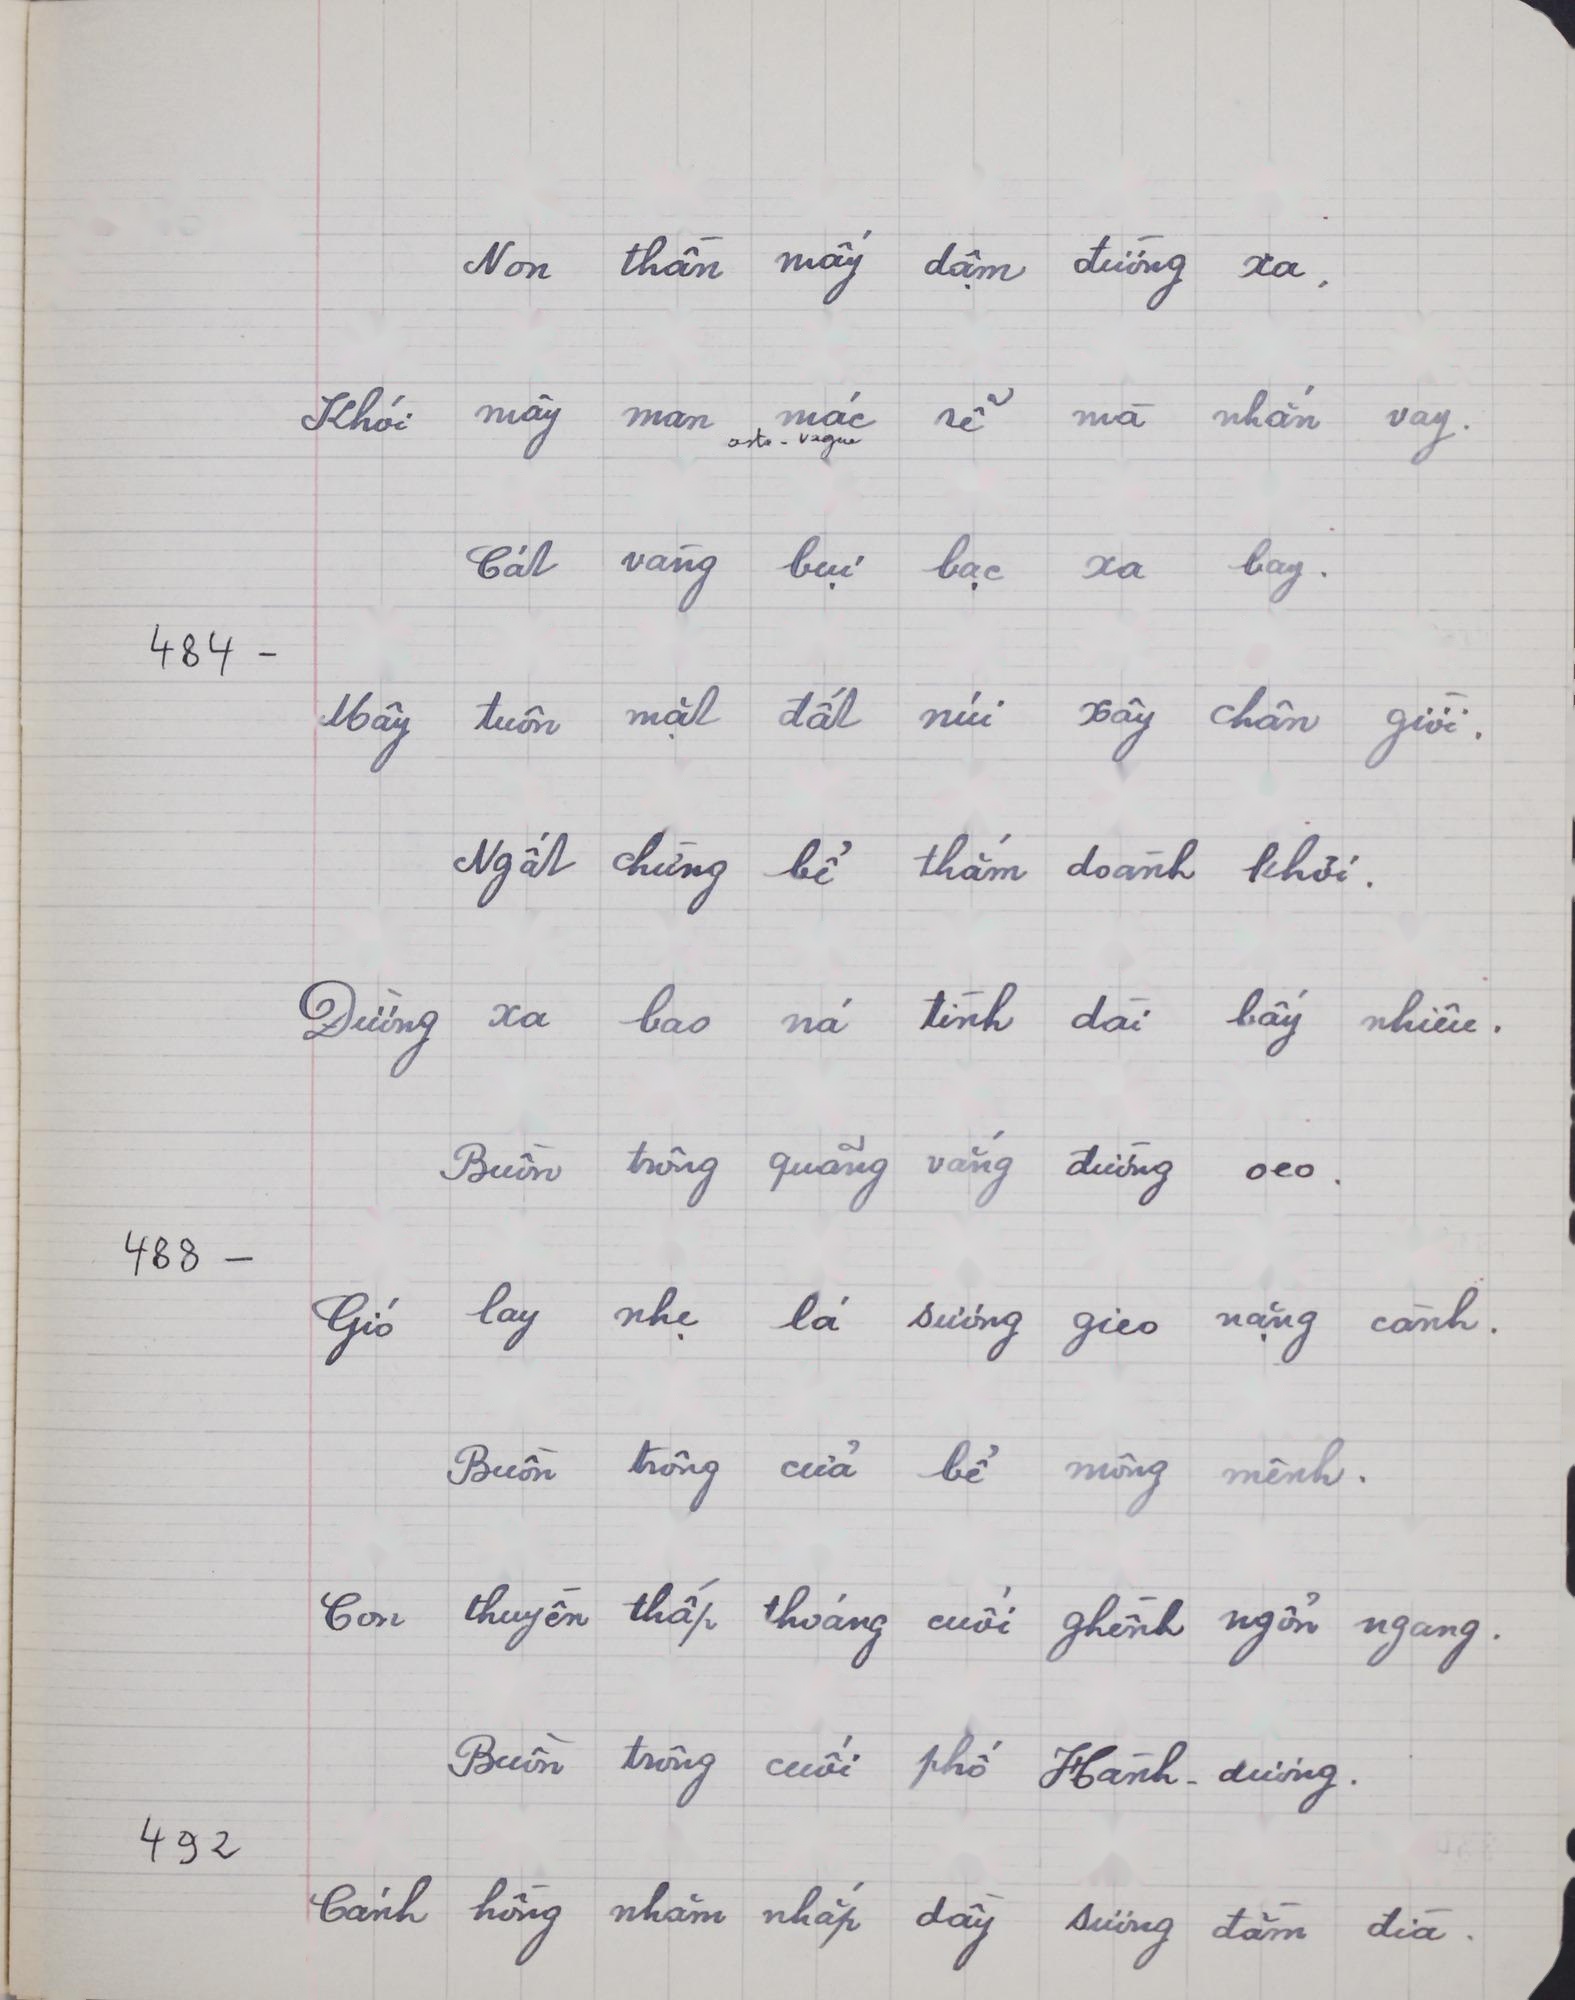 Non thần mấy dậm đường xa,
Khói mây man mác rẽ̂ mà nhắn vay.
vague
Cát vàng bụi bạc xa bay.
484 -
Mây tuôn mặt đất núi xây chân giời.
Ngất chừng bể thắm doành khơi.
Đường xa bao ná tình dài bấy nhiêu.
Buồn trông quãng vắng đường oeo.
488 -
Gió lay nhẹ lá sương gieo nặng cành.
Buồn trông cửa bể mông mênh.
Con thuyền thấp thoáng cuối ghềnh ngổn ngang.
Buồn trông cuối phố Hành-dương.
492
Cánh hồng nhăm nhắp dầy sương đằm đìa.